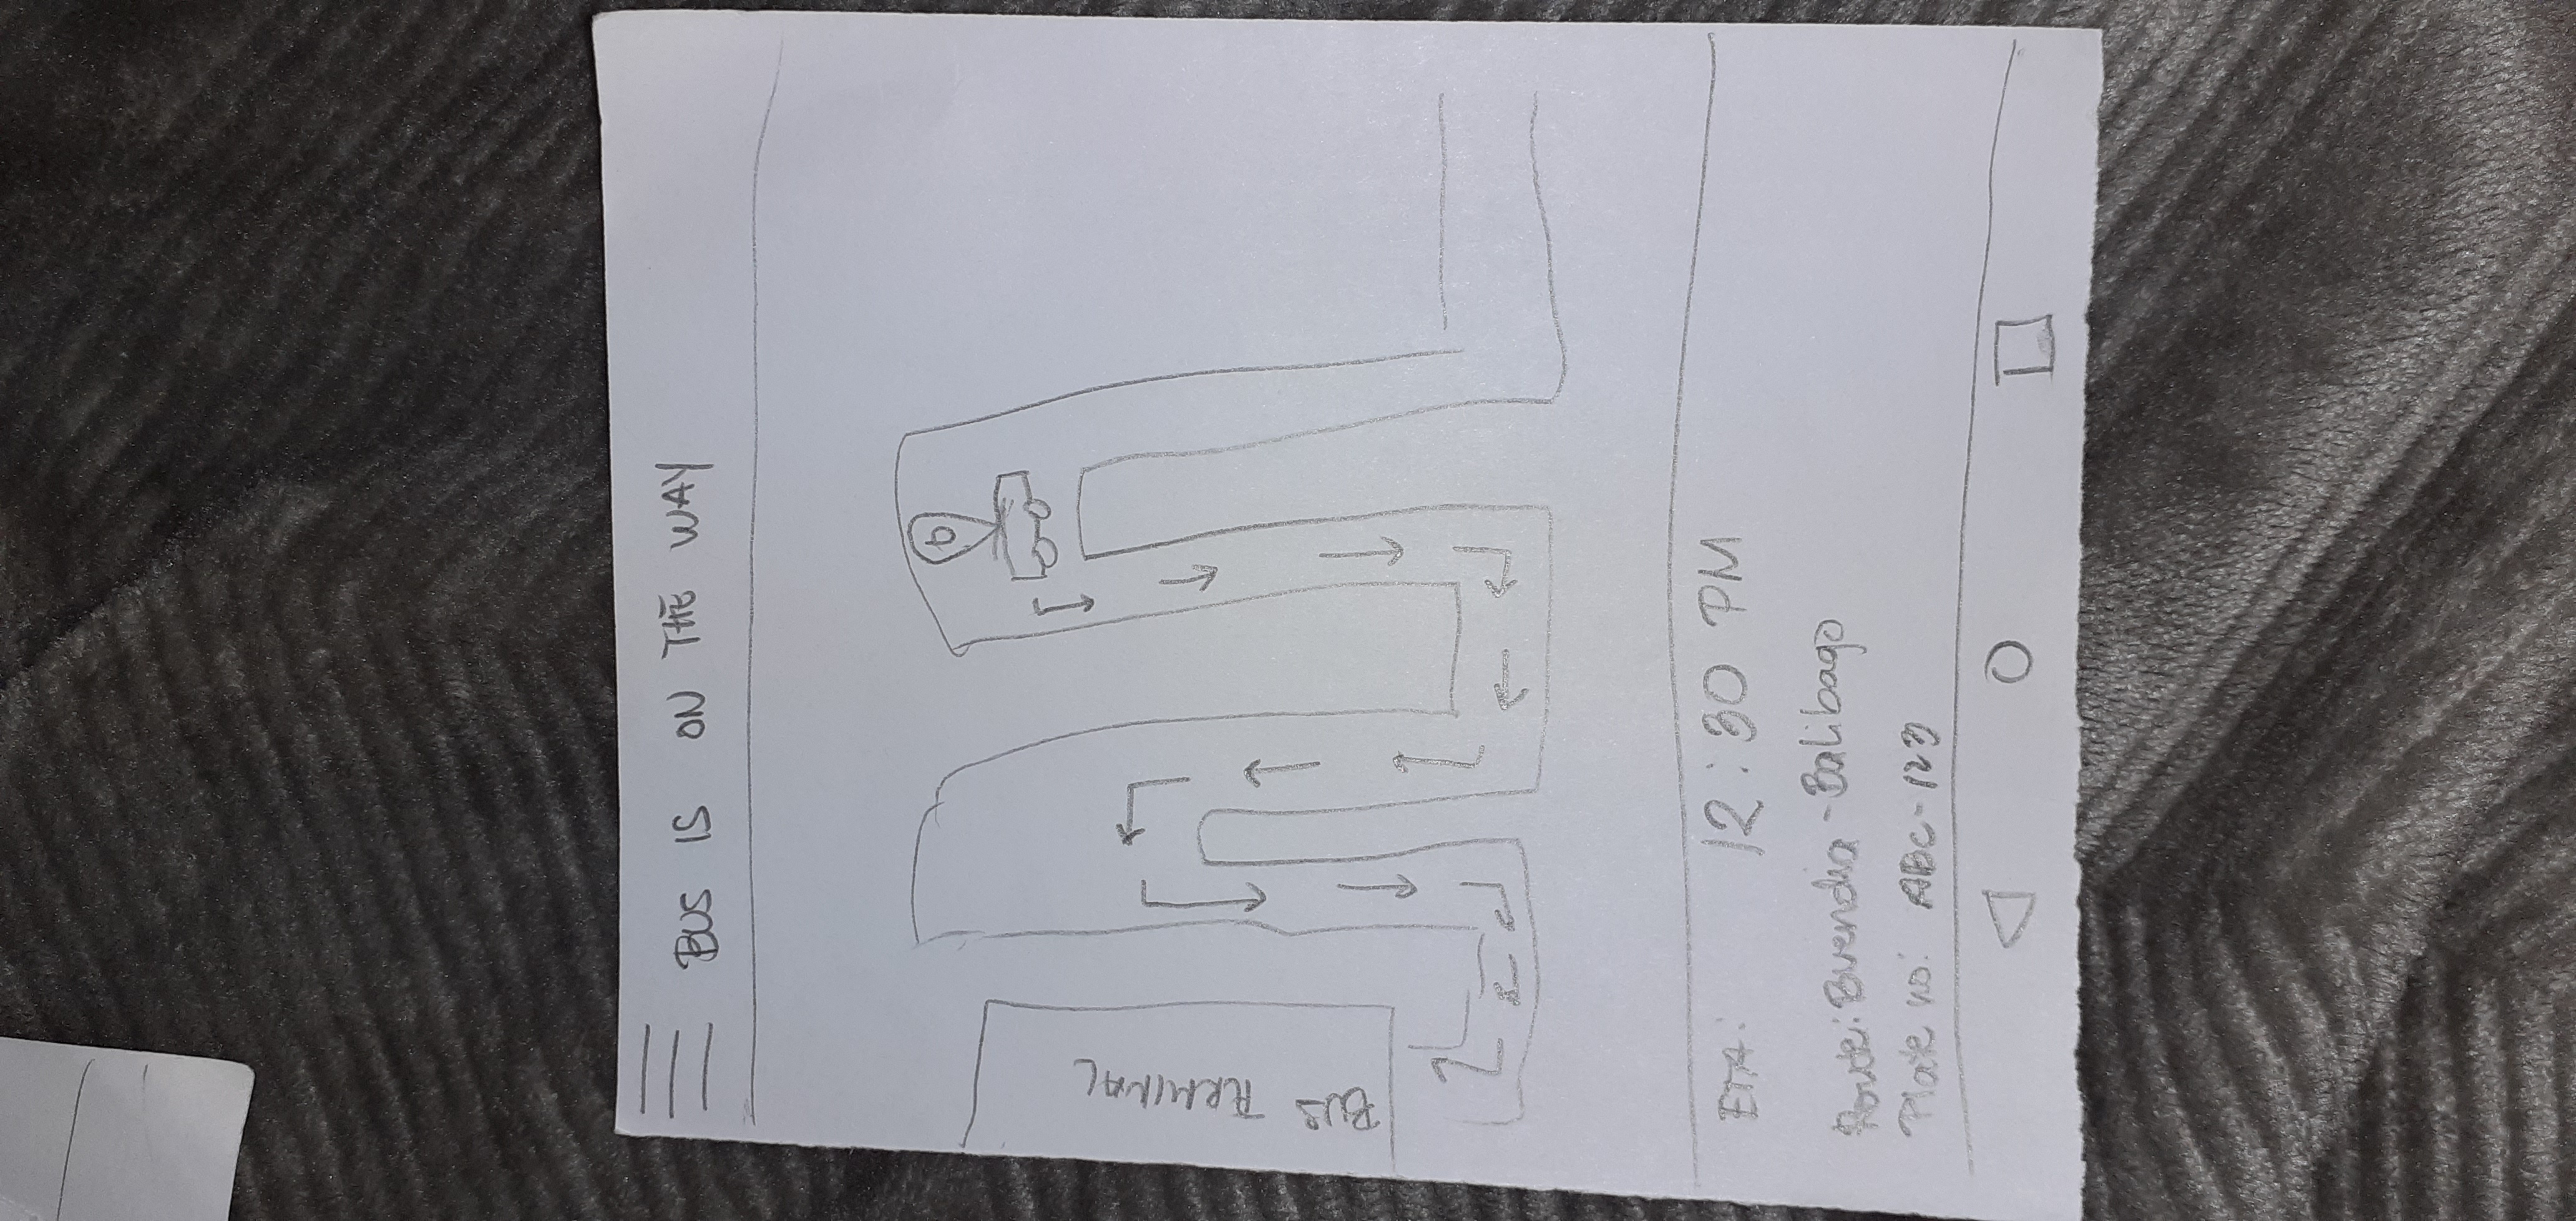 BUS IS ON THE WAY
BUS TERMINAL
ETA: 12:30 PM
Route: Buendia - Balibago
Plate no: ABC-123